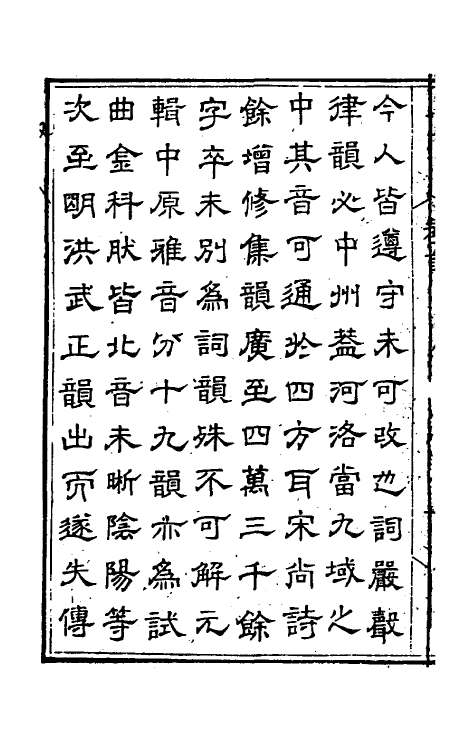 今人皆遵守未可改也詞嚴聲
律韻必中州葢河洛當九域之
中其音可通於四方耳宋尚詩
餘增修集韻廣至四萬三千餘
字卒未別為詞韻殊不可解元
輯中原雅音分十九韻亦為試
曲金科肰皆北音未晰陰陽等
次至明洪武正韻出而遂失傳